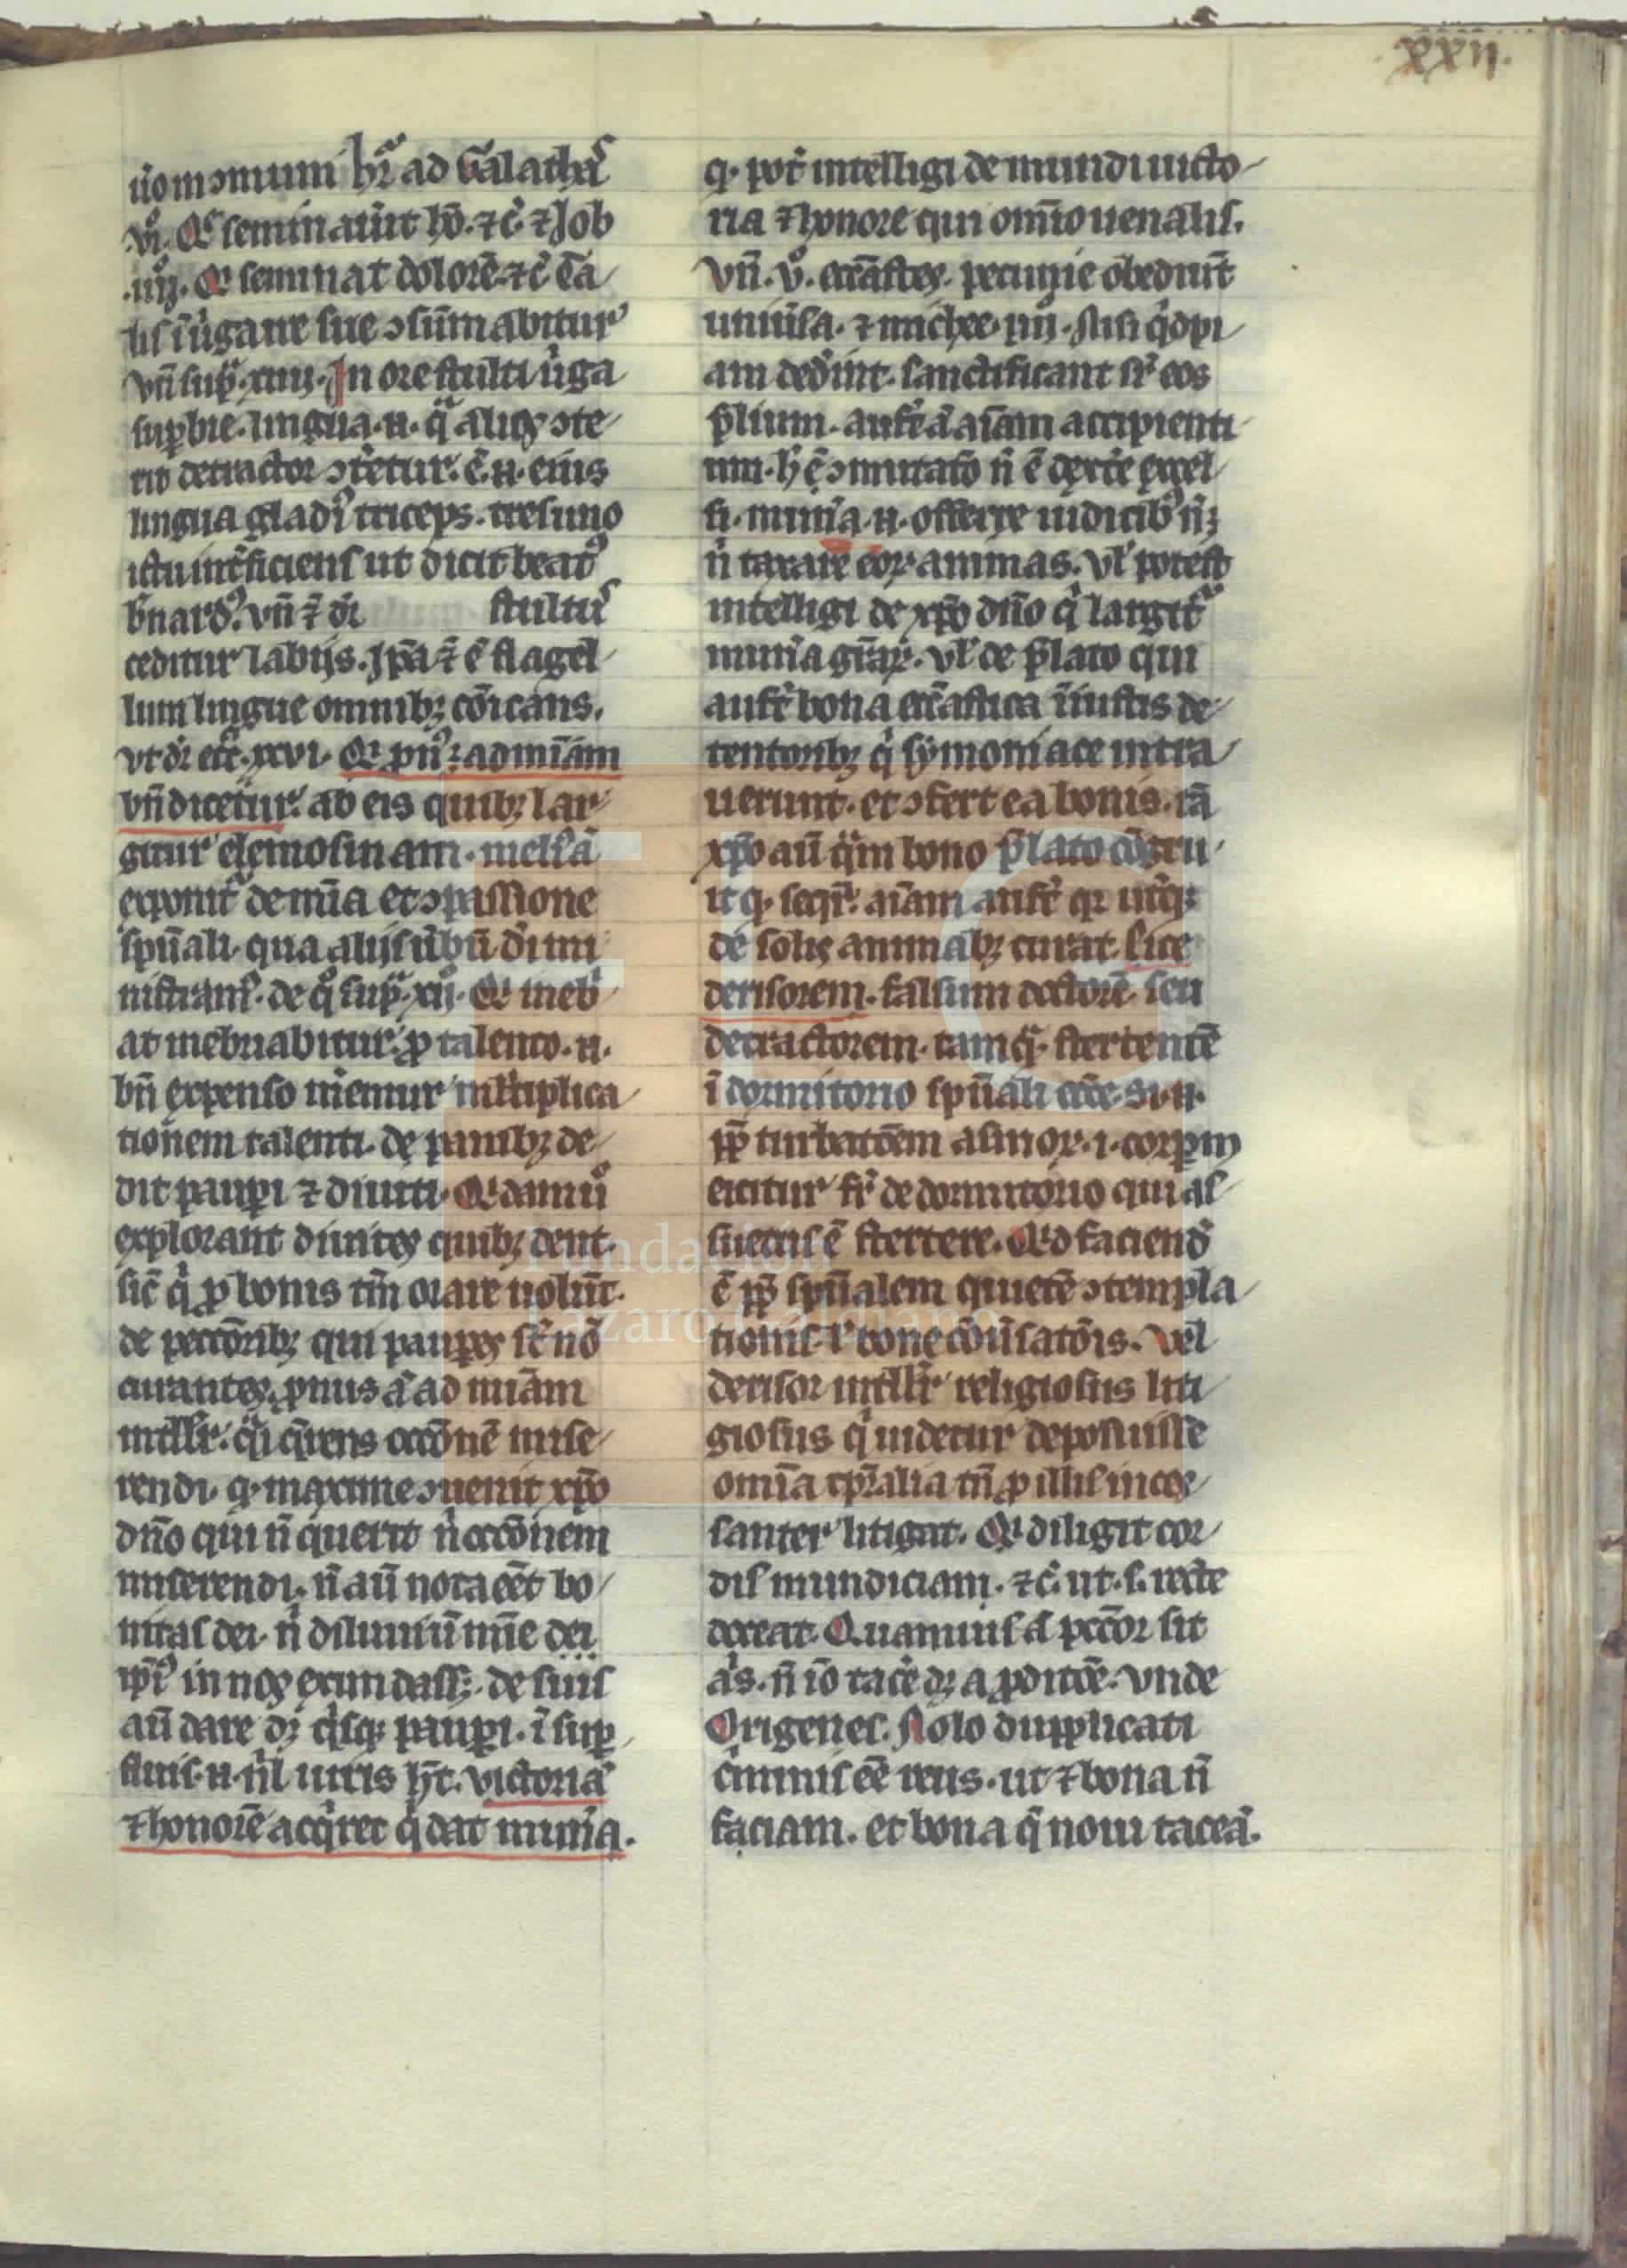 .xxii.
uo monium hr̄ ad Galathas
.vi. Qi seminauit hō. ⁊c̄. ⁊ Job
.iiij. Qi seminat dolorē ⁊c̄ ea
sue ↄsūmabitur
vn̄ sup̄ .xiiij. In ore stulti uirga
supbie. lingua .n. qua alios ↄte
rit detractor ↄteretur. ē .n. eius
lingua gladiꝰ triceps. tres uno
ictu int̄ficiens ut dicit beatꝰ
b̄nardꝰ. vn̄ ⁊ dr̄ stultus
ceditur labijs. Jp̄a ⁊ ē flagel
lum lingue omnibꝫ cōicans.
vt dr̄ ecc̄i .xxvi. Qi pnꝰ ad mīam
bn̄dicetur. ab eis quibꝫ lar
gitur elemosinam. melꝰ
exponitr̄ de mīa et ↄpassione
sp̄uali qua alijs ubū dī mi
nistrans. de qͦ sup̄ .xij. Qi inebri
at inebriabitur. ꝓ talento .n.
bn̄ expenso meremur multiplica
tionem talenti. de panibꝫ de
dit pauperi ⁊ diuiti. Qidam ū
explorant diuites quibꝫ dent.
sic̄ qi ꝓ bonis tm̄ orare uolūt.
de pecc̄oribꝫ qui pauꝑes st̄ nō
curantes. pnus ad mīam
intellr̄. qi querens occōnē mise
rendi. q. maxime ↄuenit xp̄o
dn̄o qui n̄ querit n̄ occōnem
miserendi. n̄ aū nota eēt bo
nitas dei. n̄ diluuiū mīe dei
ip̄iꝰ in nos exundass;. de suis
aū dare dꝫ qisqꝫ pauꝑi. ī suꝑ
fluis .n. nl̄ iuris hēt. victoriā
⁊ honorē acqret qi dat munera.
q. pot̄ intelligi de mundi uicto
ria ⁊ honore qui omnio uenalis.
Vn̄ .v. eccl̄astes. pecunie obediūt
uniūsa. ⁊ michee .iiij. Nisi qi dpi
am dederint. sanctificant sr̄ eos
p̄lium. aufert aīam accipienti
um. h̄ ē ↄmutatō n̄ ē dextre excel
si. munera .n. offerre iudicibꝰ nꝫ
n̄ taxare eorꝝ animas. Vl̄ potest
intelligi de xp̄o dn̄o qi largitr̄
munera grāꝝ. vl̄ de p̄lato qui
aufert bona eccl̄astica iniustis de
tentoribꝫ qi symoniace intra
uerunt. et ↄfert ea bonis. tā
xp̄o aū qm̄ bono p̄lato cōgru
it q. seqr̄. aīam aufert qr utq;
de solis animabꝫ curat. Eice
derisorem. falsum doctorē seu
detractorem. tamq̄ stertentē
ī dormitorio sp̄uali eccl̄e. si .n.
ꝓpt̄ turbatōem asinoꝝ .i. corꝑm
eicitur fr̄ de dormitorio qui as
suetus ē stertere. Qid faciendū
ē ꝓpt̄ sp̄ualem quietē ↄtempla
tionis. l̄ bone cōuersatōis. Vel
derisor intellr̄ religiosus liti
giosus qi uidetur deposuisse
omīa tp̄ralia tn̄ ꝓ illis inces
santer litigat. Qi diligit cor
dis mundiciam. ⁊c̄. ut .s. recte
doceat. Quamuis aū pecc̄or sit
n̄ iō tacē dꝫ a ꝓpōitōe. Vnde
Origenes. Nolo dupplicati
criminis eē reus. ut ⁊ bona n̄
faciam. et bona q̄ noui taceā.
Fundación
Lázaro Galdiano